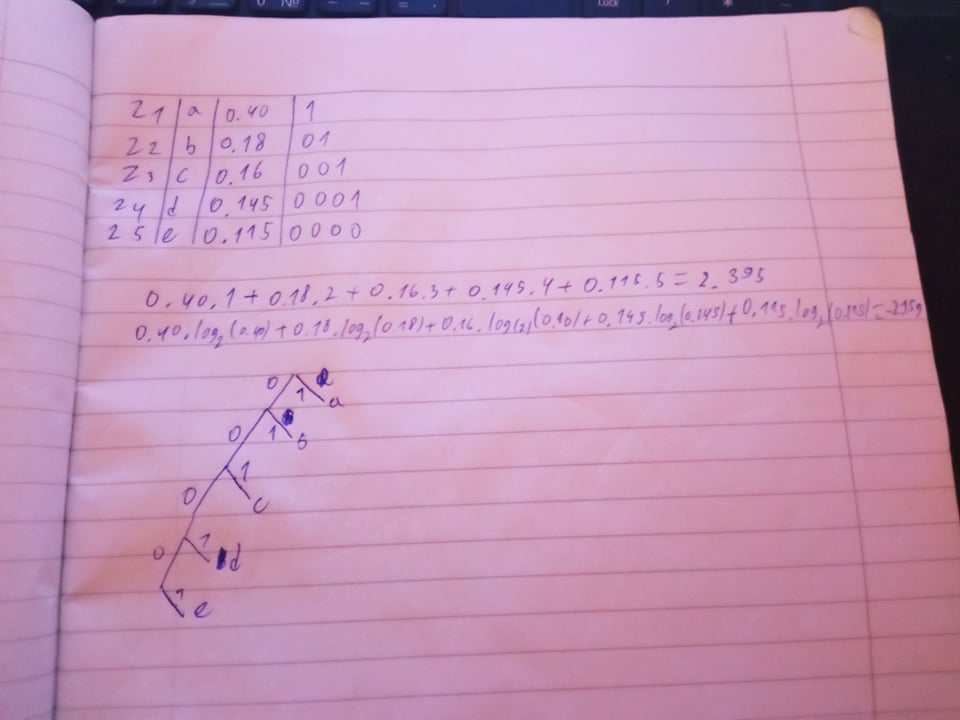 z1 | a | 0.40 | 1
z2 | b | 0.18 | 01
z3 | c | 0.16 | 001
z4 | d | 0.145 | 0001
z5 | e | 0.115 | 0000
0.40.1 + 0.18.2 + 0.16.3 + 0.145.4 + 0.115.5 = 2.395
0.40.log2(0.40) + 0.18.log2(0.18) + 0.16.log(2)(0.10) + 0.145.log2(0.145) + 0.115.log2(0.115) = -2.159
0
1 a
0 1 b
1
0 c
0 1 d
1 e